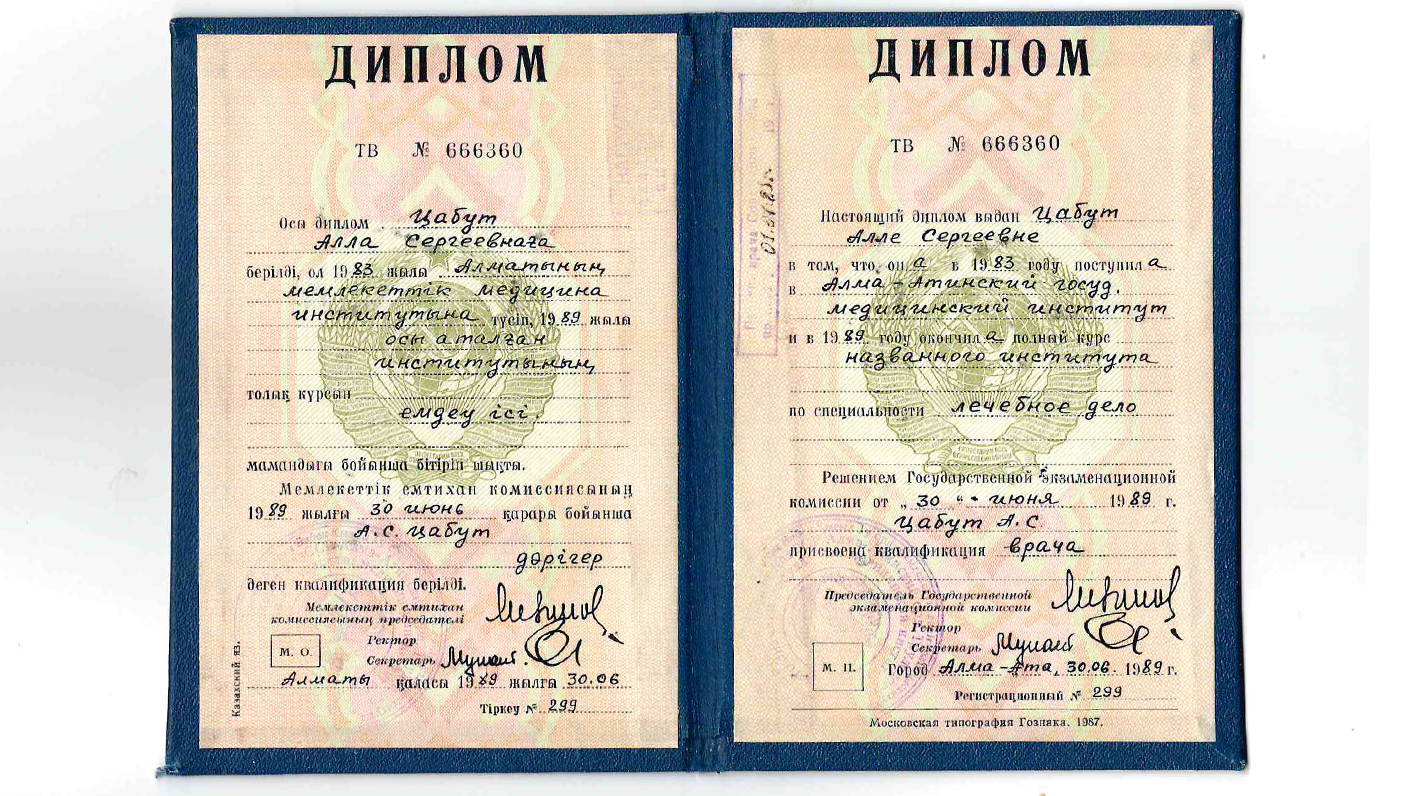 ДИПЛОМ
ТВ № 666360
Осы диплом Цабут
Алла Сергеевнаға
берілді, ол 1983 жылы Алматының
мемлекеттік медицина
институтына түсіп, 1989 жылы
осы аталған
институтының
толық курсын
емдеу ісі.
мамандығы бойынша бітіріп шықты.
Мемлекеттік емтихан комиссиясының
1989 жылғы 30 июнь қарары бойынша
А.С. Цабут
дәрігер
деген квалификация берілді.
Мемлекеттік емтихан
комиссиясының председателі
Ректор
Секретарь
М. О.
Алматы қаласы 1989 жылғы 30.06
Тіркеу № 299
Казахский яз.
ДИПЛОМ
ТВ № 666360
Настоящий диплом выдан Цабут
Алле Сергеевне
в том, что он а в 1983 году поступил а
в Алма-Атинский госуд.
медицинский институт
и в 1989 году окончил а полный курс
названного института
по специальности лечебное дело
Решением Государственной экзаменационной
комиссии от „30“ июня 1989 г.
Цабут А.С.
присвоена квалификация врача
Председатель Государственной
экзаменационной комиссии
Ректор
Секретарь
М. П.
Город Алма-Ата, 30.06. 1989 г.
Регистрационный № 299
Московская типография Гознака. 1987.